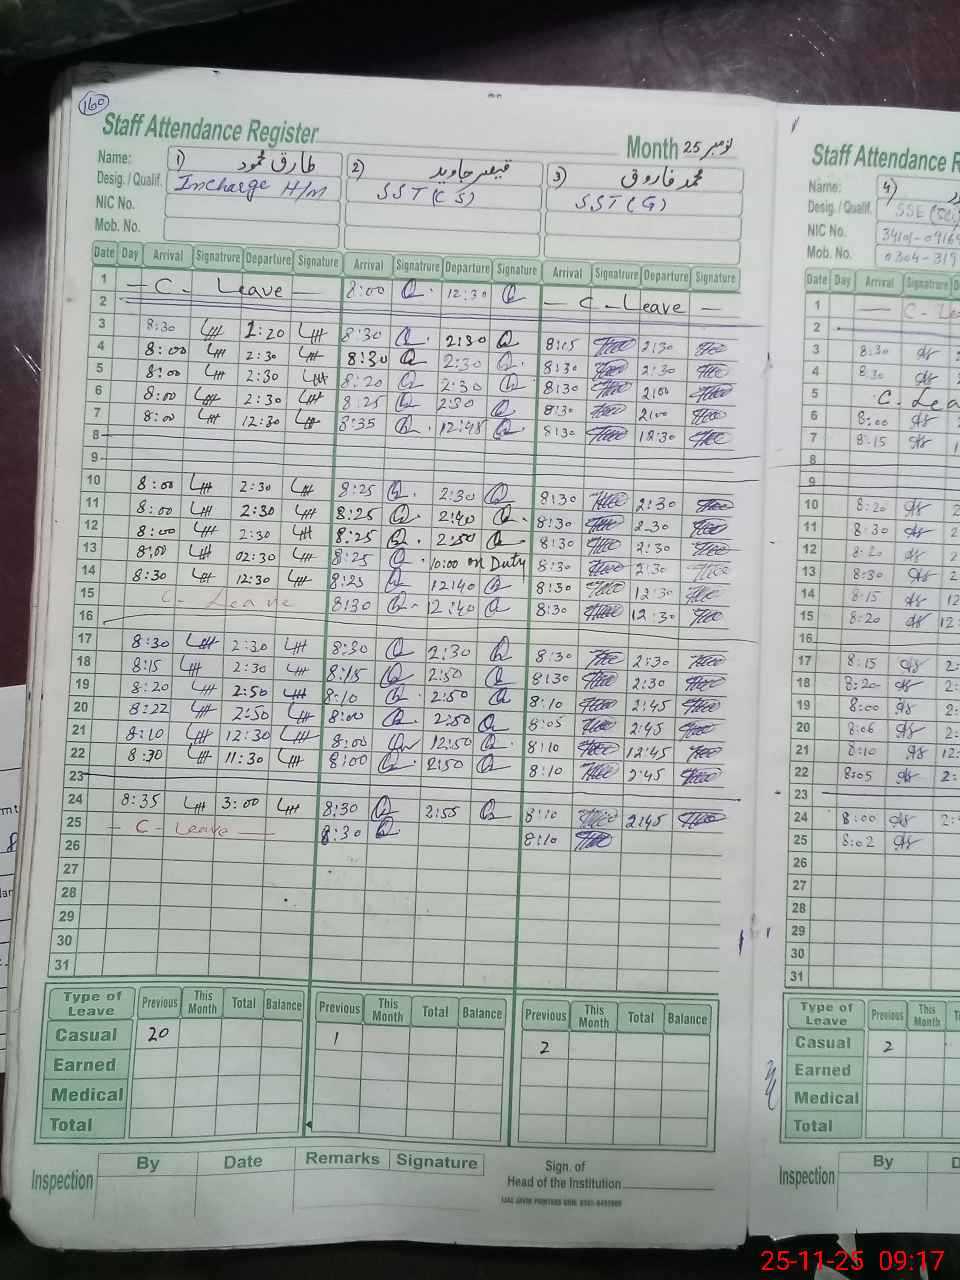 160
Staff Attendance Register
Month نومبر 25
Name: 1) طارق محمود 2) قیصر جاوید 3) محمد فاروق
Desig. / Qualif. Incharge H/M SST (CS) SST (G)
NIC No.
Mob. No.
Date Day Arrival Signatrure Departure Signature Arrival Signatrure Departure Signature Arrival Signatrure Departure Signature
1 - C - Leave - 8:00 12:30 - C - Leave -
2
3 8:30 2:20 8:30 2:30 8:15 2:30
4 8:00 2:30 8:30 2:30 8:30 2:30
5 8:00 2:30 8:20 2:30 8:30 2:00
6 8:00 2:30 8:25 2:30 8:30 2:00
7 8:00 12:30 8:35 12:45 8:30 12:30
8
9
10 8:00 2:30 8:25 2:30 8:30 2:30
11 8:00 2:30 8:25 2:40 8:30 2:30
12 8:00 2:30 8:25 2:50 8:30 2:30
13 8:00 02:30 8:25 10:00 on Duty 8:30 2:30
14 8:30 12:30 8:25 12:40 8:30 12:30
15 C - Leave 8:30 12:40 8:30 12:30
16
17 8:30 2:30 8:30 2:30 8:30 2:30
18 8:15 2:30 8:15 2:50 8:30 2:30
19 8:20 2:50 8:10 2:50 8:10 2:45
20 8:22 2:50 8:00 2:50 8:05 2:45
21 8:10 12:30 8:00 12:50 8:10 12:45
22 8:30 11:30 8:00 2:50 8:10 2:45
23
24 8:35 3:00 8:30 2:55 8:10 2:45
25 - C - Leave - 8:30 8:10
26
27
28
29
30
31
Type of Leave Previous This Month Total Balance Previous This Month Total Balance Previous This Month Total Balance
Casual 20 1 2
Earned
Medical
Total
Inspection By Date Remarks Signature
Sign. of
Head of the Institution
Staff Attendance
Name: 4)
Desig. / Qualif. SSE
NIC No.
Mob. No.
Date Day Arrival Signatrure
1 - C -
2
3 8:30
4 8:30
5 C.
6 8:00
7 8:15
8
9
10 8:20
11 8:30
12 8:20
13 8:30
14 8:15
15 8:20
16
17 8:15
18 8:20
19 8:00
20 8:06
21 8:10
22 8:05
23
24 8:00
25 8:02
26
27
28
29
30
31
Type of Leave Previous This Month
Casual 2
Earned
Medical
Total
Inspection By
25-11-25 09:17